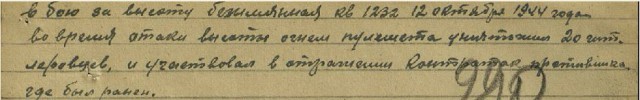 в бою за высоту безымянная кв 1232 12 октября 1944 года
во время атаки высоты огнем пулемета уничтожил 20 гит-
леровцев, и участвовал в отражении контратак противника
где был ранен.